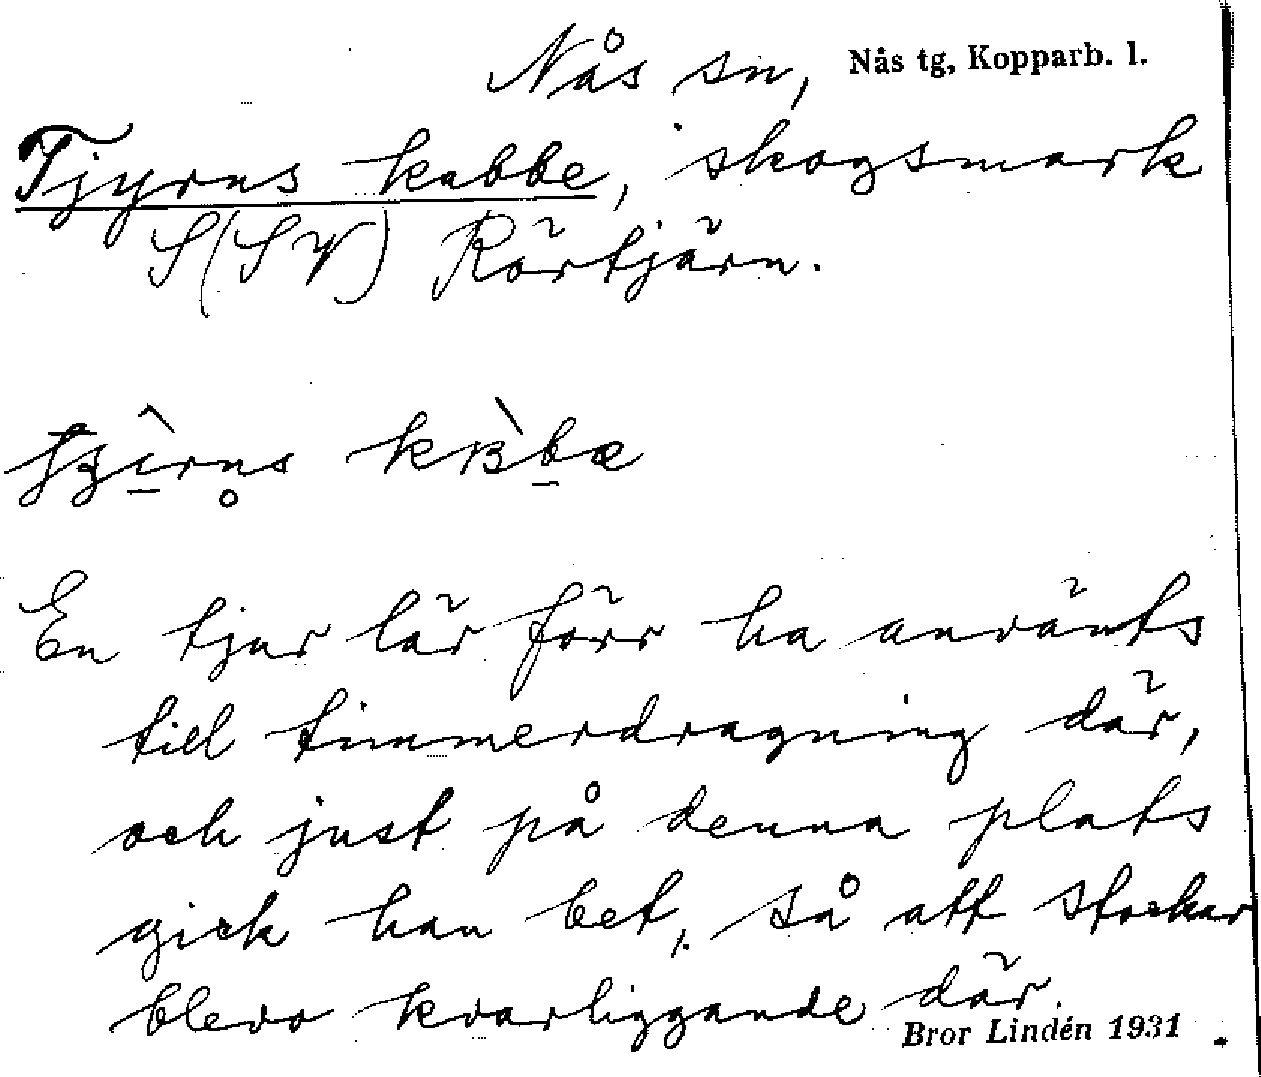 Nås sn, Nås tg, Kopparb. l.
Tjyrns kabbe, skogsmark
S(SV) Rörtjärn.
En tjur lär förr ha använts
till timmerdragning där,
och just på denna plats
gick han bet, så att stockar
blevo kvarliggande där.
Bror Lindén 1931